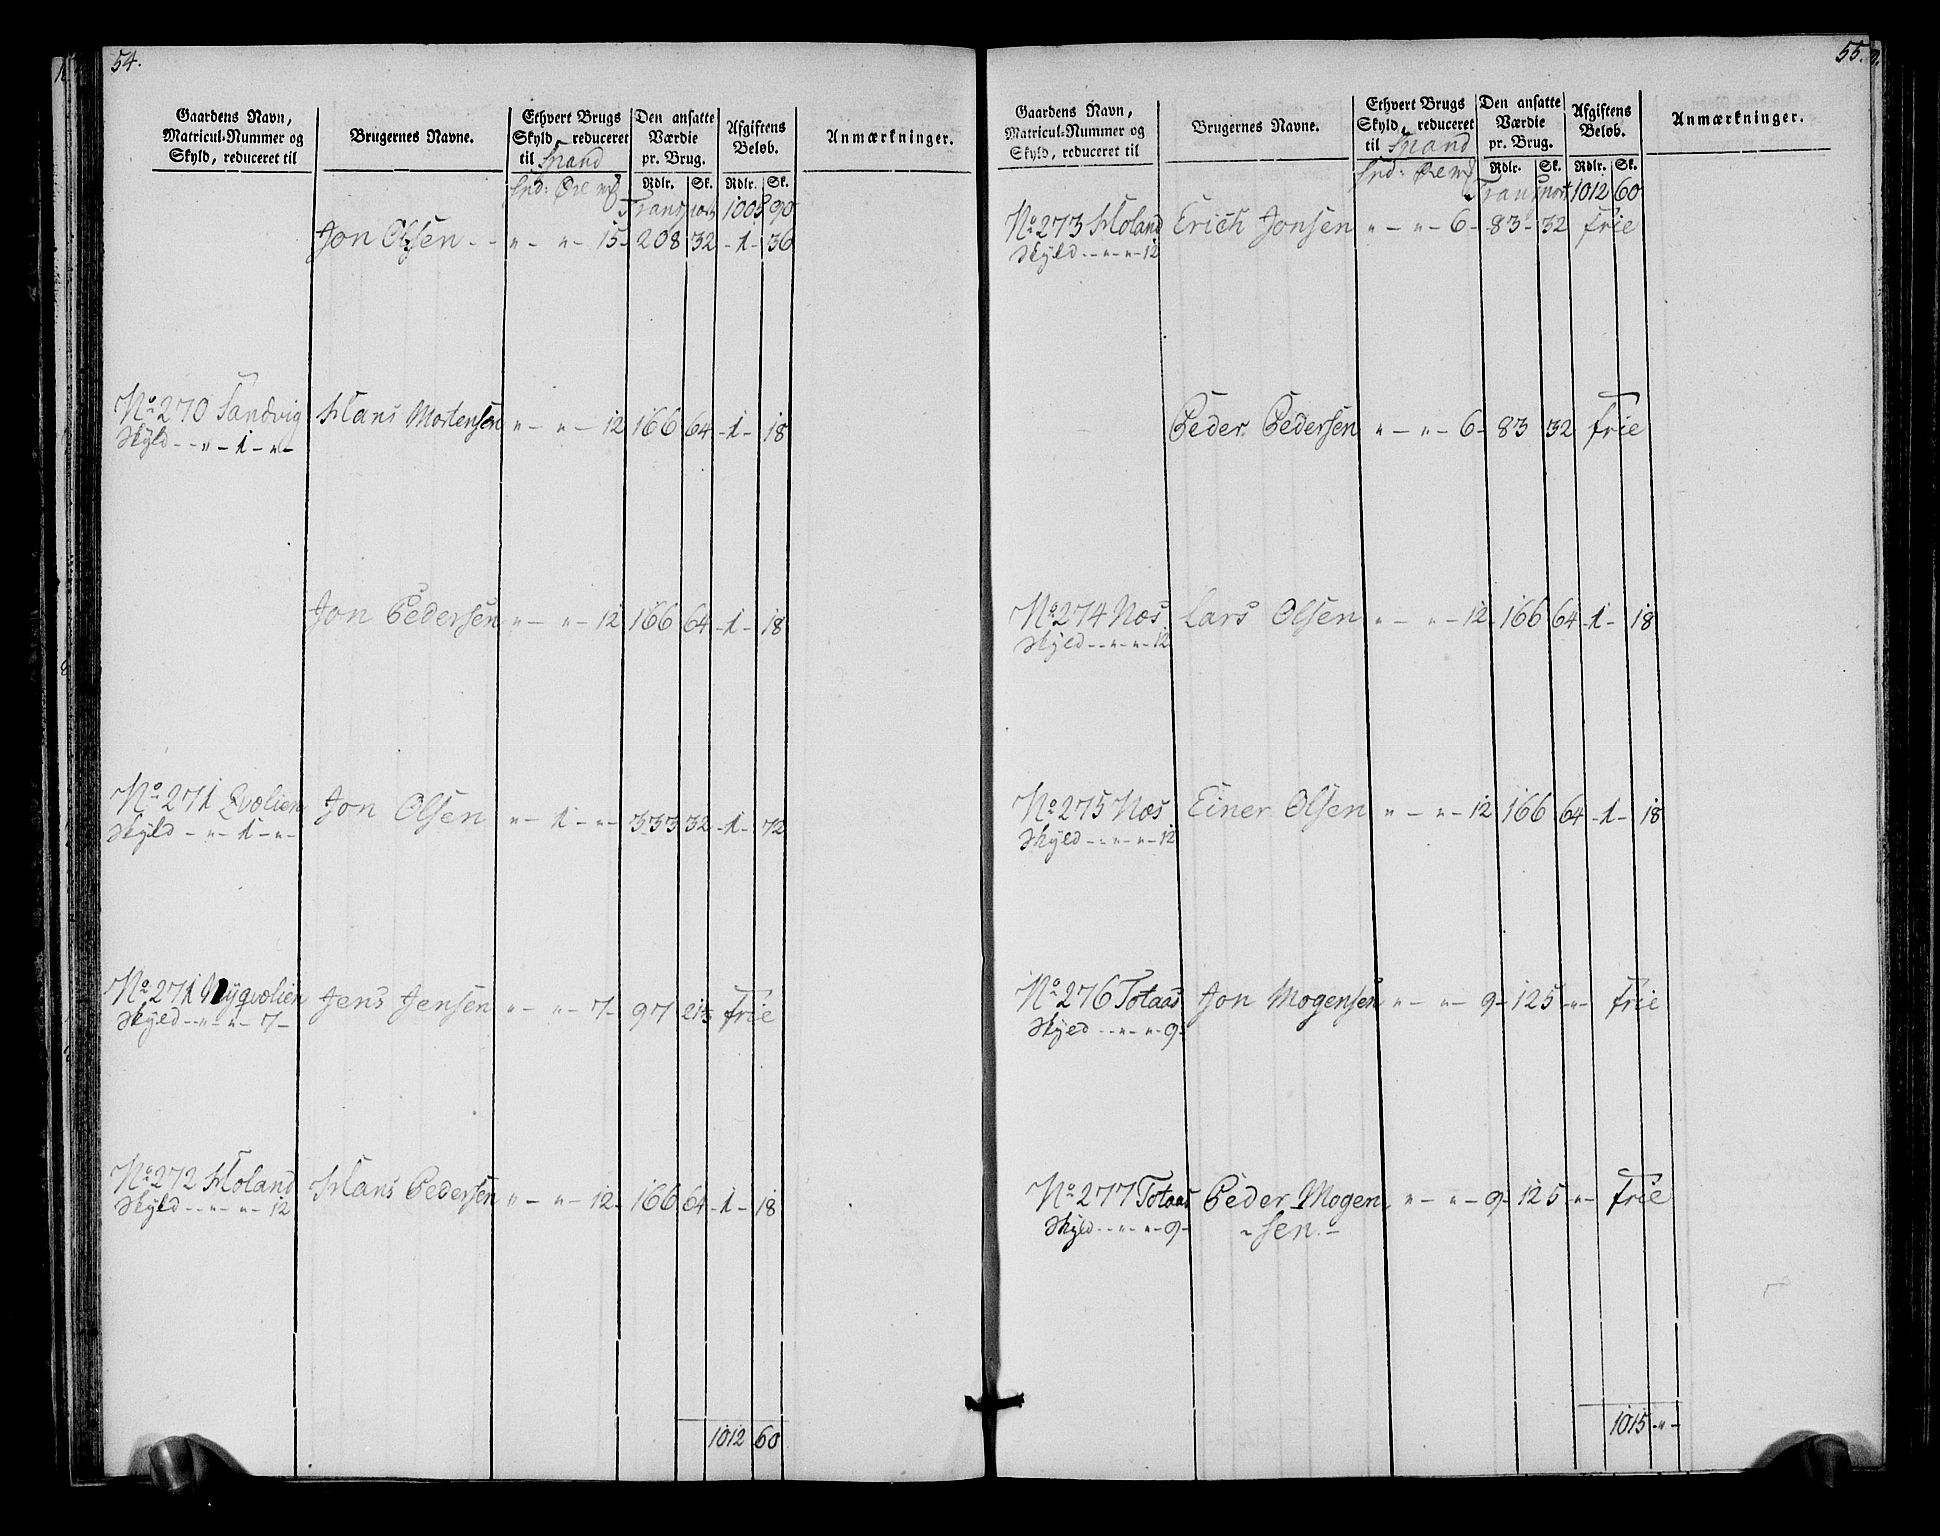 54.
Gaardens Navn, Matricul-Nummer og Skyld, reduceret til
Brugernes Navne.
Ethvert Brugs Skyld reduceret til Spand
Den ansatte Værdie pr. Brug.
Afgiftens Beløb.
Anmærkninger.
Spd: Øre mſ Rdlr. Sk. Rdlr. Sk.
Transport 1005 90
Jon Olsen - - " - " - 15 - 208 32 - 1 - 36
No 270 Sandvig Hans Mortensen " - " - 12 166 64 - 1 - 18
Skyld - - " - 1 - " -
Jon Pedersen " - " - 12 166 64 - 1 - 18
No 271 Qvolien Jon Olsen " - 1 - " - 333 32 - 1 - 72
Skyld - " - 1 - " -
No 271 Nyqvolien Jens Jensen " - " - 7 - 97 21⅓ frie
Skyld - - " - " - 7 -
No 272 Holand Hans Pedersen " - " - 12 - 166 64 - 1 - 18
Skyld - - " - " - 12
1012 60
55.
Gaardens Navn, Matricul-Nummer og Skyld, reduceret til
Brugernes Navne.
Ethvert Brugs Skyld reduceret til Spand
Den ansatte Værdie pr. Brug.
Afgiftens Beløb.
Anmærkninger.
Spd: Øre mſ Rdlr. Sk. Rdlr. Sk.
Transport 1012 60
No 273 Holand Erich Jonsen " - " - 6 - 83 - 32 frie
Skyld - - " - " - 12
Peder Pedersen " - " - 6 - 83 32 frie
No 274 Næs Lars Olsen " - " - 12 - 166 64 - 1 - 18
Skyld - - " - " - 12
No 275 Næs Einer Olsen " - " - 12 166 64 - 1 - 18
Skyld - - " - " - 12
No 276 Totaas Jon Mogensen " - " - 9 - 125 - " - frie
Skyld - - " - " - 9 -
No 277 Totaas Peder Mogen " - " - 9 - 125 - " - frie
Skyld - - " - " - 9 - - sen. -
1015 - " -